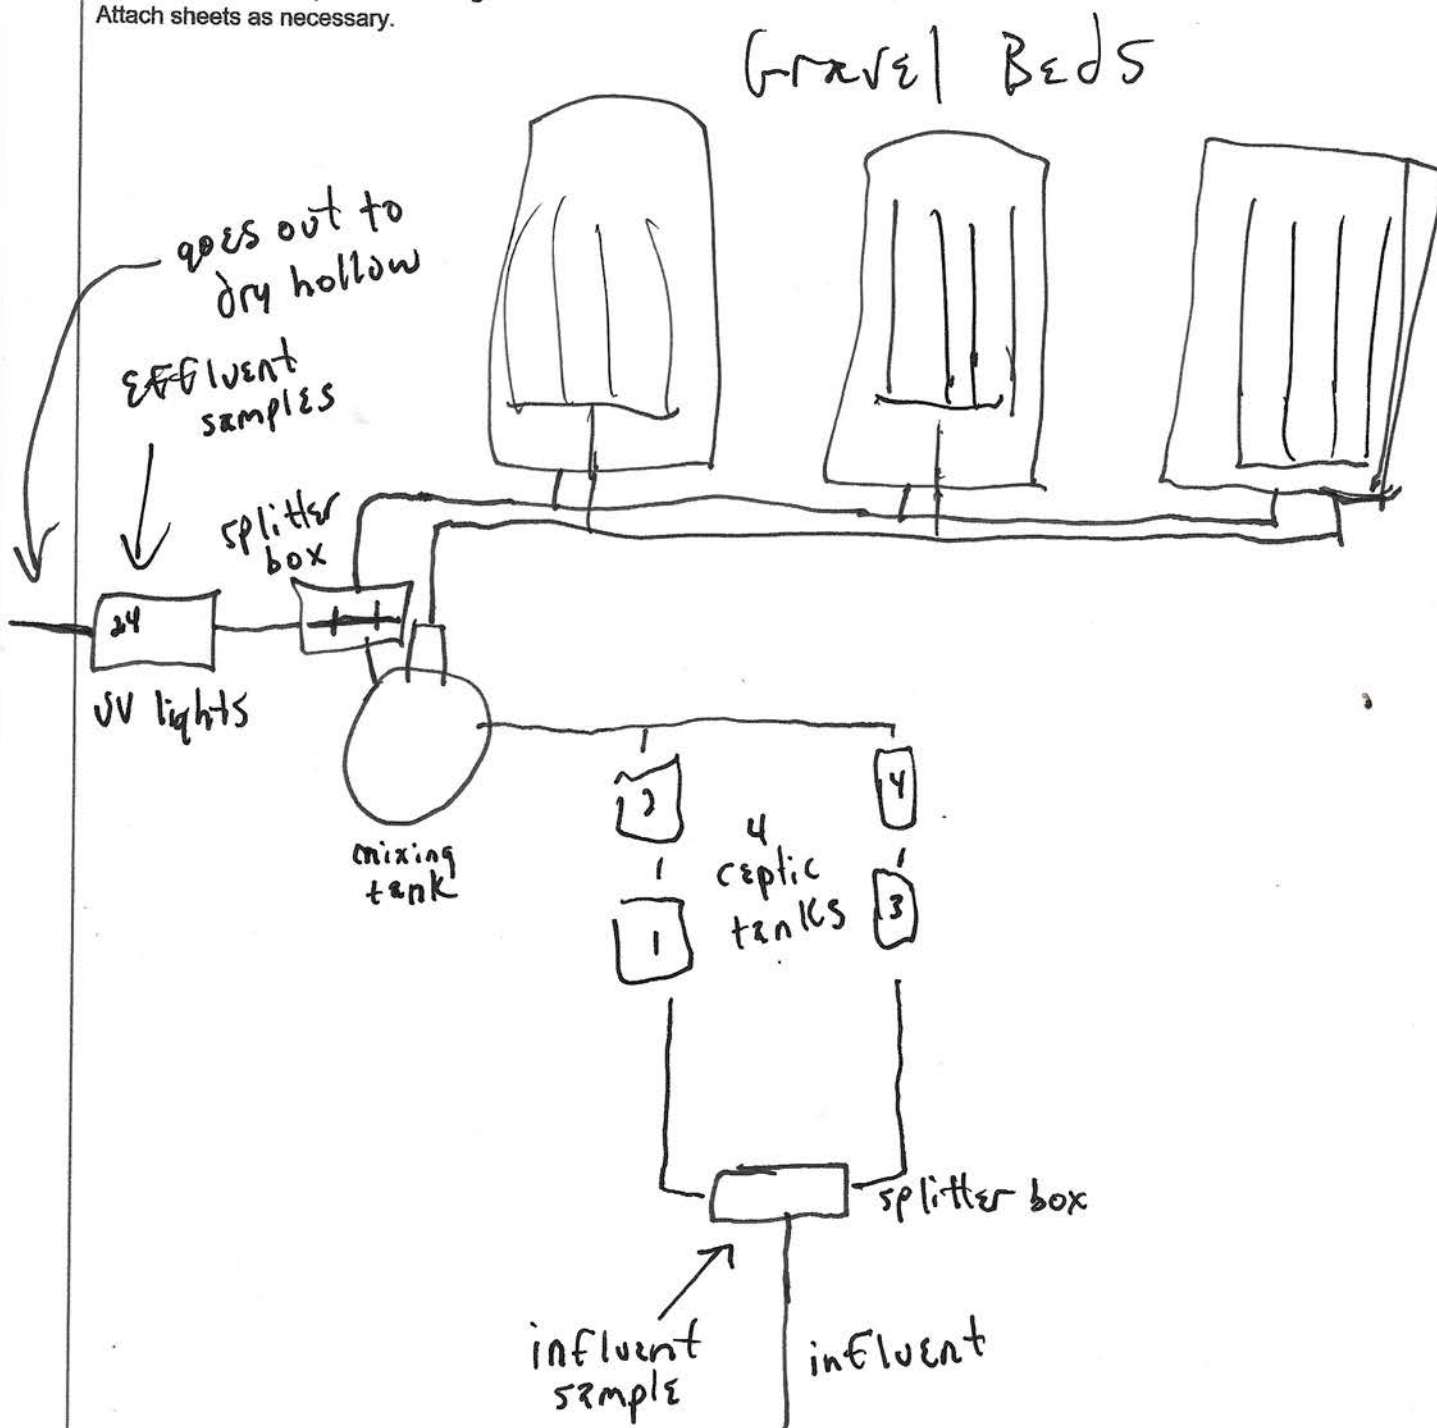 Attach sheets as necessary.
Gravel Beds
goes out to
dry hollow
Effluent
samples
splitter
box
24
UV lights
mixing
tank
2
4
4
ceptic
tanks
1
3
splitter box
influent
sample
influent